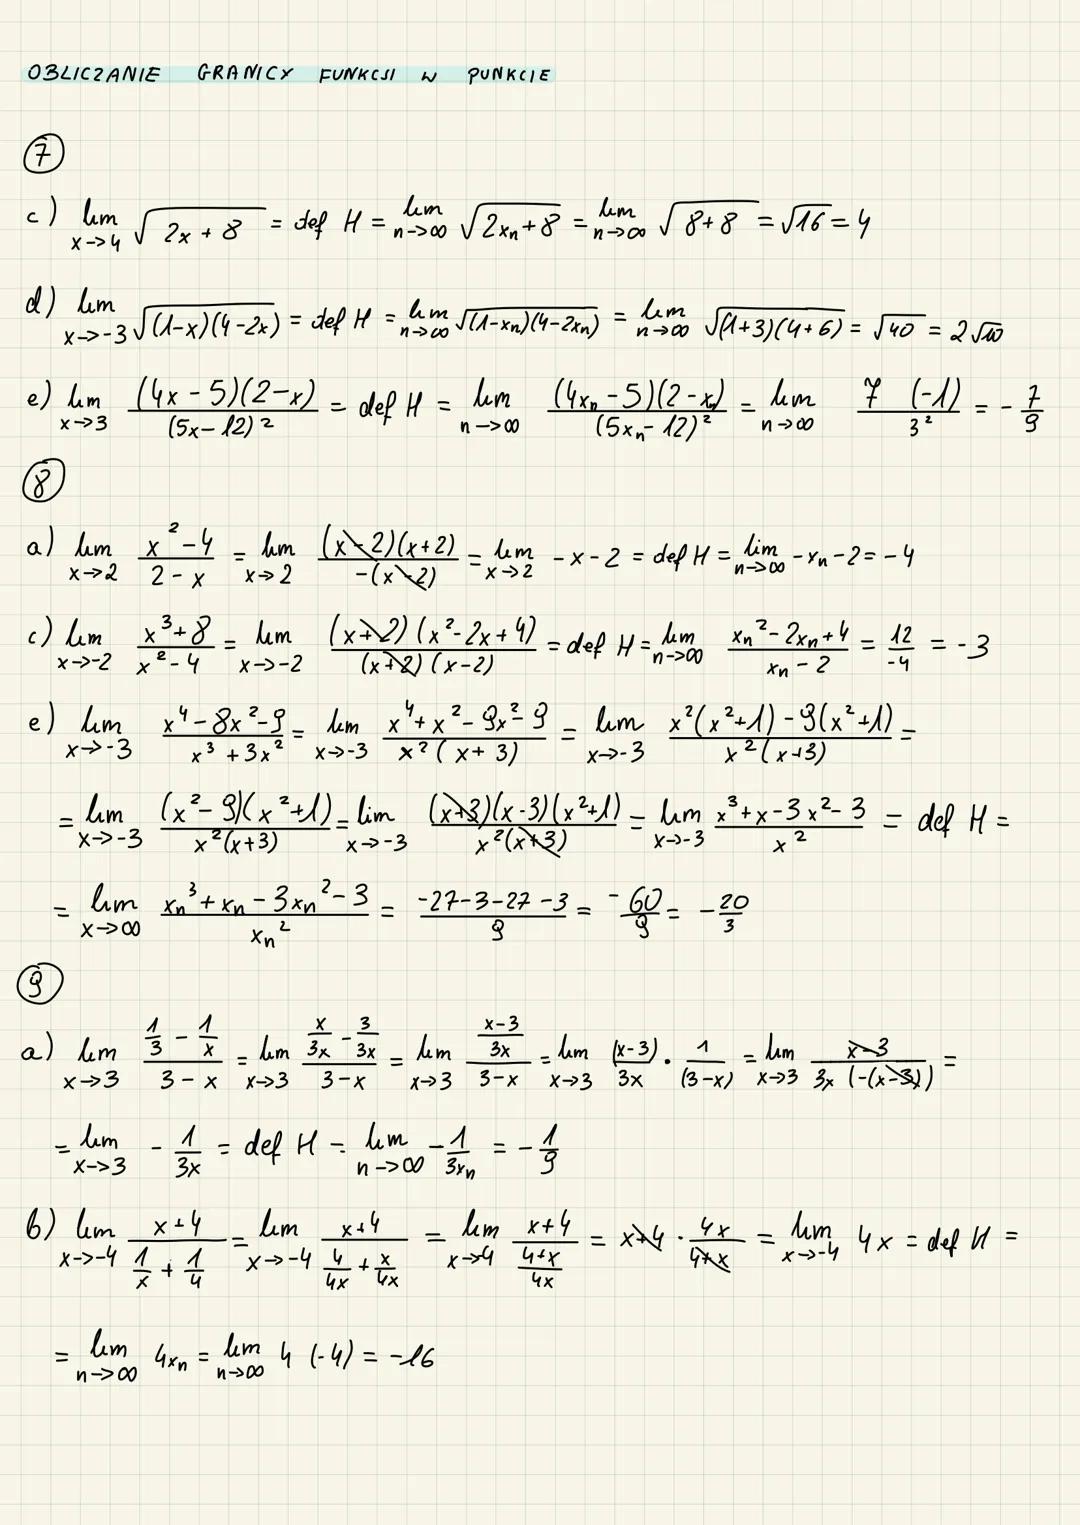 OBLICZANIE GRANICY FUNKCJI W PUNKCIE
7
c) lim x->4 √(2x + 8) = def H = lim n->∞ √(2xₙ+8) = lim n->∞ √(8+8) = √16 = 4
d) lim x->-3 √((1-x)(4-2x)) = def H = lim n->∞ √((1-xₙ)(4-2xₙ)) = lim n->∞ √((1+3)(4+6)) = √40 = 2√10
e) lim x->3 (4x - 5)(2-x)/(5x-12)² = def H = lim n->∞ (4xₙ-5)(2-xₙ)/(5xₙ-12)² = lim n->∞ 7 (-1)/3² = -7/9
8
a) lim x->2 (x²-4)/(2-x) = lim x->2 (x-2)(x+2)/(-(x-2)) = lim x->2 -x-2 = def H = lim n->∞ -xₙ-2 = -4
c) lim x->-2 (x³+8)/(x²-4) = lim x->-2 (x+2)(x²-2x+4)/((x+2)(x-2)) = def H = lim n->∞ (xₙ²-2xₙ+4)/(xₙ-2) = 12/-4 = -3
e) lim x->-3 (x⁴-8x²-9)/(x³+3x²) = lim x->-3 (x⁴+x²-9x²-9)/(x²(x+3)) = lim x->-3 (x²(x²+1)-9(x²+1))/(x²(x+3)) =
= lim x->-3 (x²-9)(x²+1)/(x²(x+3)) = lim x->-3 (x+3)(x-3)(x²+1)/(x²(x+3)) = lim x->-3 (x³+x-3x²-3)/x² = def H =
= lim x->∞ (xₙ³+xₙ-3xₙ²-3)/xₙ² = (-27-3-27-3)/9 = -60/9 = -20/3
9
a) lim x->3 (1/3 - 1/x)/(3-x) = lim x->3 (x/3x - 3/3x)/(3-x) = lim x->3 ((x-3)/3x)/(3-x) = lim x->3 (x-3)/3x · 1/(3-x) = lim x->3 (x-3)/(3x (-(x-3))) =
= lim x->3 -1/3x = def H = lim n->∞ -1/3xₙ = -1/9
b) lim x->-4 (x+4)/(1/x + 1/4) = lim x->-4 (x+4)/(4/4x + x/4x) = lim x->4 (x+4)/((4+x)/4x) = x+4 · 4x/(4+x) = lim x->-4 4x = def H =
= lim n->∞ 4xₙ = lim n->∞ 4 (-4) = -16